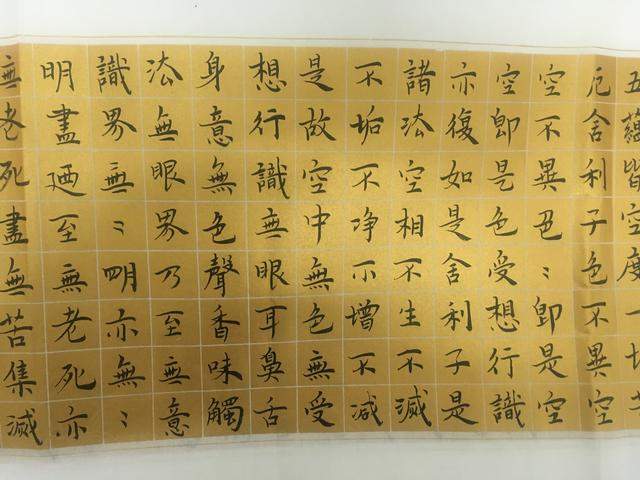 五蘊皆空度一切
厄舍利子色不異空
空不異色〻即是空
空即是色受想行識
亦復如是舍利子是
諸法空相不生不滅
不垢不净不增不减
是故空中無色無受
想行識無眼耳鼻舌
身意無色聲香味觸
法無眼界乃至無意
識界無〻明亦無〻
明盡廼至無老死亦
無老死盡無苦集滅